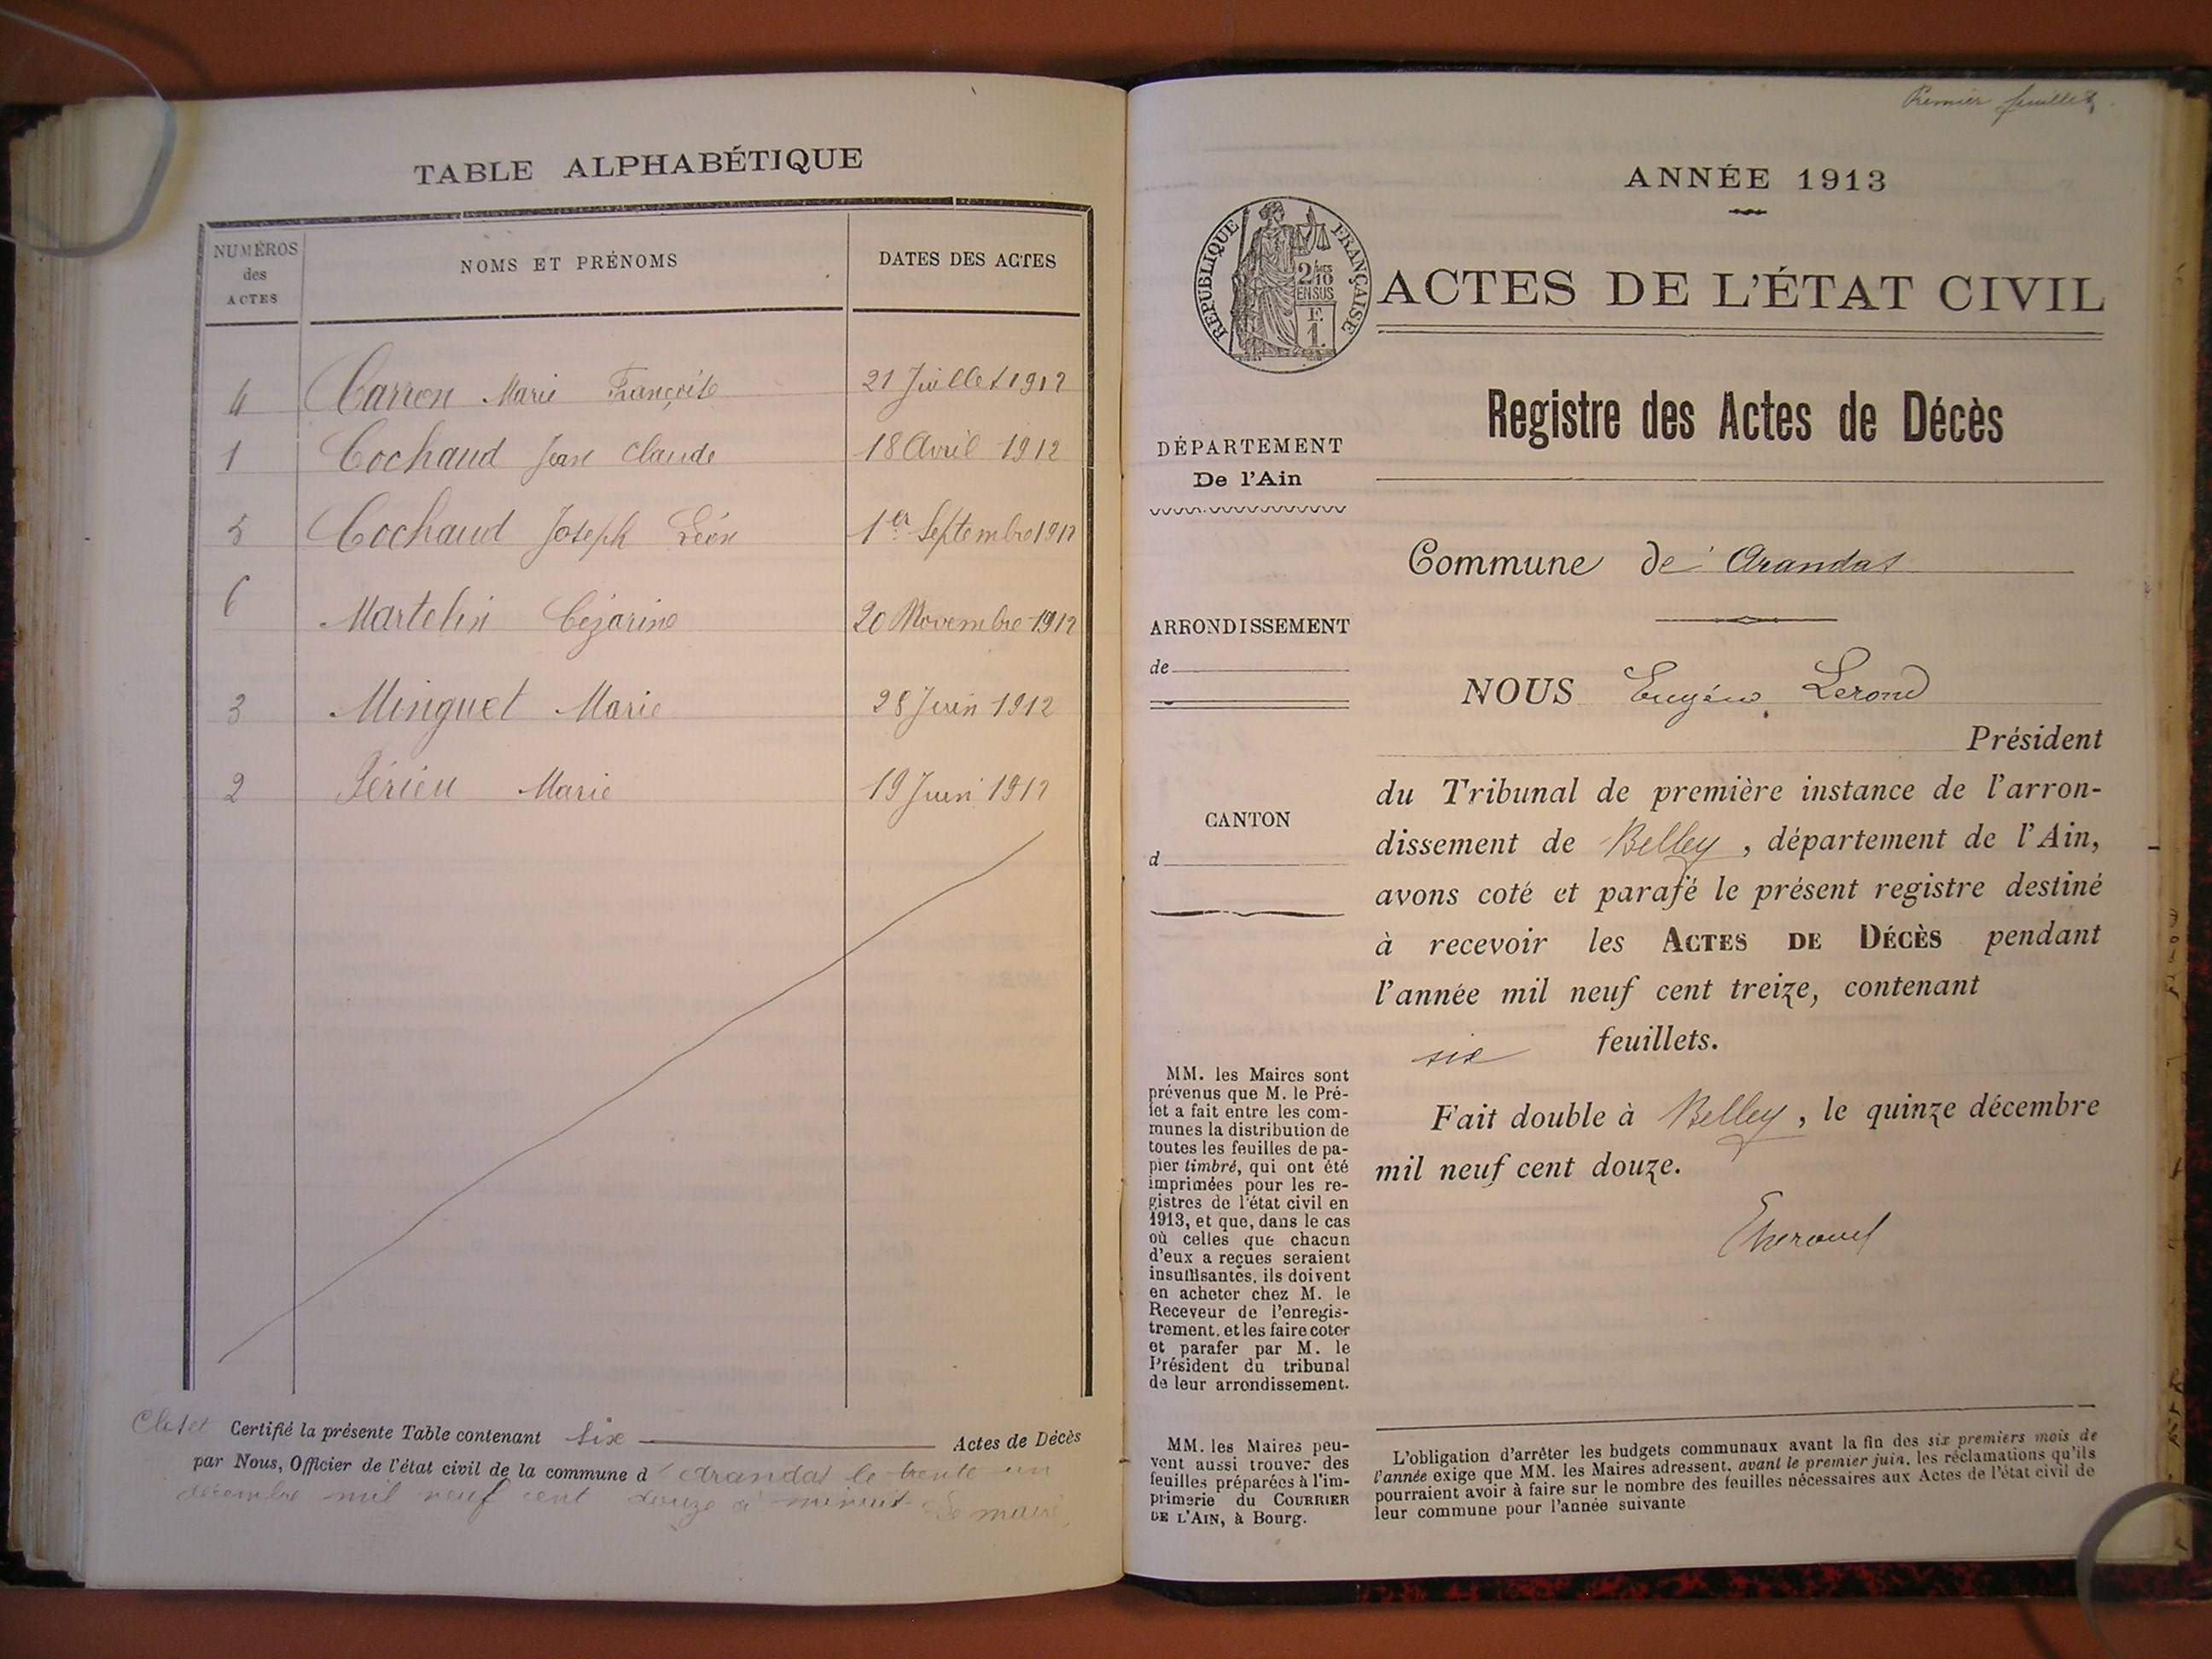 TABLE ALPHABÉTIQUE
NUMÉROS
des
ACTES
NOMS ET PRÉNOMS
DATES DES ACTES
4 Carron Marie Françoise 21 Juillet 1912
1 Cochaud Jean Claude 18 Avril 1912
5 Cochaud Joseph Léon 1er Septembre 1912
6 Martelin Cézarine 20 Novembre 1912
3 Minguet Marie 28 Juin 1912
2 Périeu Marie 19 Juin 1912
Clos et Certifié la présente Table contenant six Actes de Décès
par Nous, Officier de l'état civil de la commune d'Arandas le trente un
décembre mil neuf cent douze à minuit Le maire,
Premier feuillet
ANNÉE 1913
RÉPUBLIQUE FRANÇAISE
2/10
EN SUS
F.
1.
ACTES DE L'ÉTAT CIVIL
Registre des Actes de Décès
DÉPARTEMENT
De l'Ain
Commune de Arandas
ARRONDISSEMENT
de
CANTON
d
NOUS Eugène Lerond
Président
du Tribunal de première instance de l'arron-
dissement de Belley, département de l'Ain,
avons coté et parafé le présent registre destiné
à recevoir les ACTES DE DÉCÈS pendant
l'année mil neuf cent treize, contenant
six feuillets.
Fait double à Belley, le quinze décembre
mil neuf cent douze.
MM. les Maires sont
prévenus que M. le Pré-
fet a fait entre les com-
munes la distribution de
toutes les feuilles de pa-
pier timbré, qui ont été
imprimées pour les re-
gistres de l'état civil en
1913, et que, dans le cas
où celles que chacun
d'eux a reçues seraient
insuffisantes, ils doivent
en acheter chez M. le
Receveur de l'enregis-
trement, et les faire coter
et parafer par M. le
Président du tribunal
de leur arrondissement.
MM. les Maires peu-
vent aussi trouver des
feuilles préparées à l'im-
primerie du COURRIER
DE L'AIN, à Bourg.
L'obligation d'arrêter les budgets communaux avant la fin des six premiers mois de
l'année exige que MM. les Maires adressent, avant le premier juin, les réclamations qu'ils
pourraient avoir à faire sur le nombre des feuilles nécessaires aux Actes de l'état civil de
leur commune pour l'année suivante